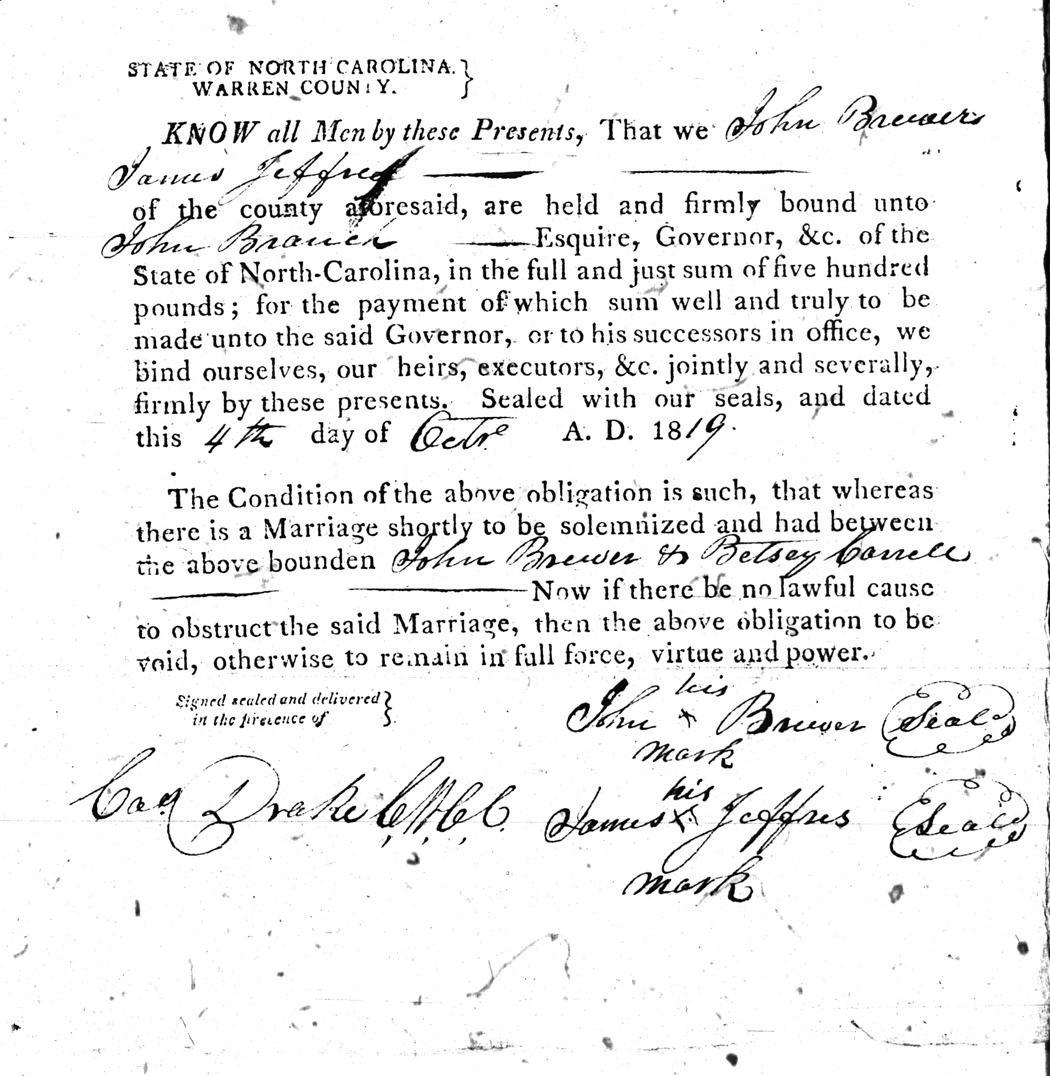 STATE OF NORTH CAROLINA. }
WARREN COUNTY.
KNOW all Men by these Presents, That we John Brewers
James Jeffres
of the county aforesaid, are held and firmly bound unto
John Branch Esquire, Governor, &c. of the
State of North-Carolina, in the full and just sum of five hundred
pounds; for the payment of which sum well and truly to be
made unto the said Governor, or to his successors in office, we
bind ourselves, our heirs, executors, &c. jointly and severally,
firmly by these presents. Sealed with our seals, and dated
this 4th day of Octre A. D. 1819.
The Condition of the above obligation is such, that whereas
there is a Marriage shortly to be solemnized and had between
the above bounden John Brewer & Betsey Correll
Now if there be no lawful cause
to obstruct the said Marriage, then the above obligation to be
void, otherwise to remain in full force, virtue and power.
Signed sealed and delivered }
in the presence of
his
John x Brewer Seal
mark
his
Drake C.W.C.C. James x Jeffres Seal
mark